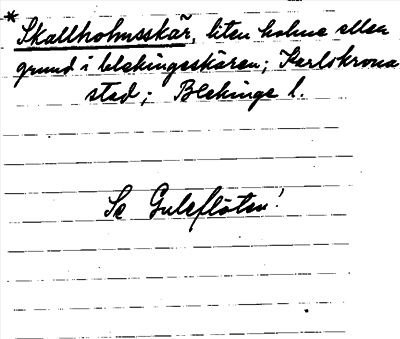 * Skallholmsskär, liten holme eller
grund i blekingeskären; Karlskrona
stad; Blekinge l.
Se Gulaflöten!